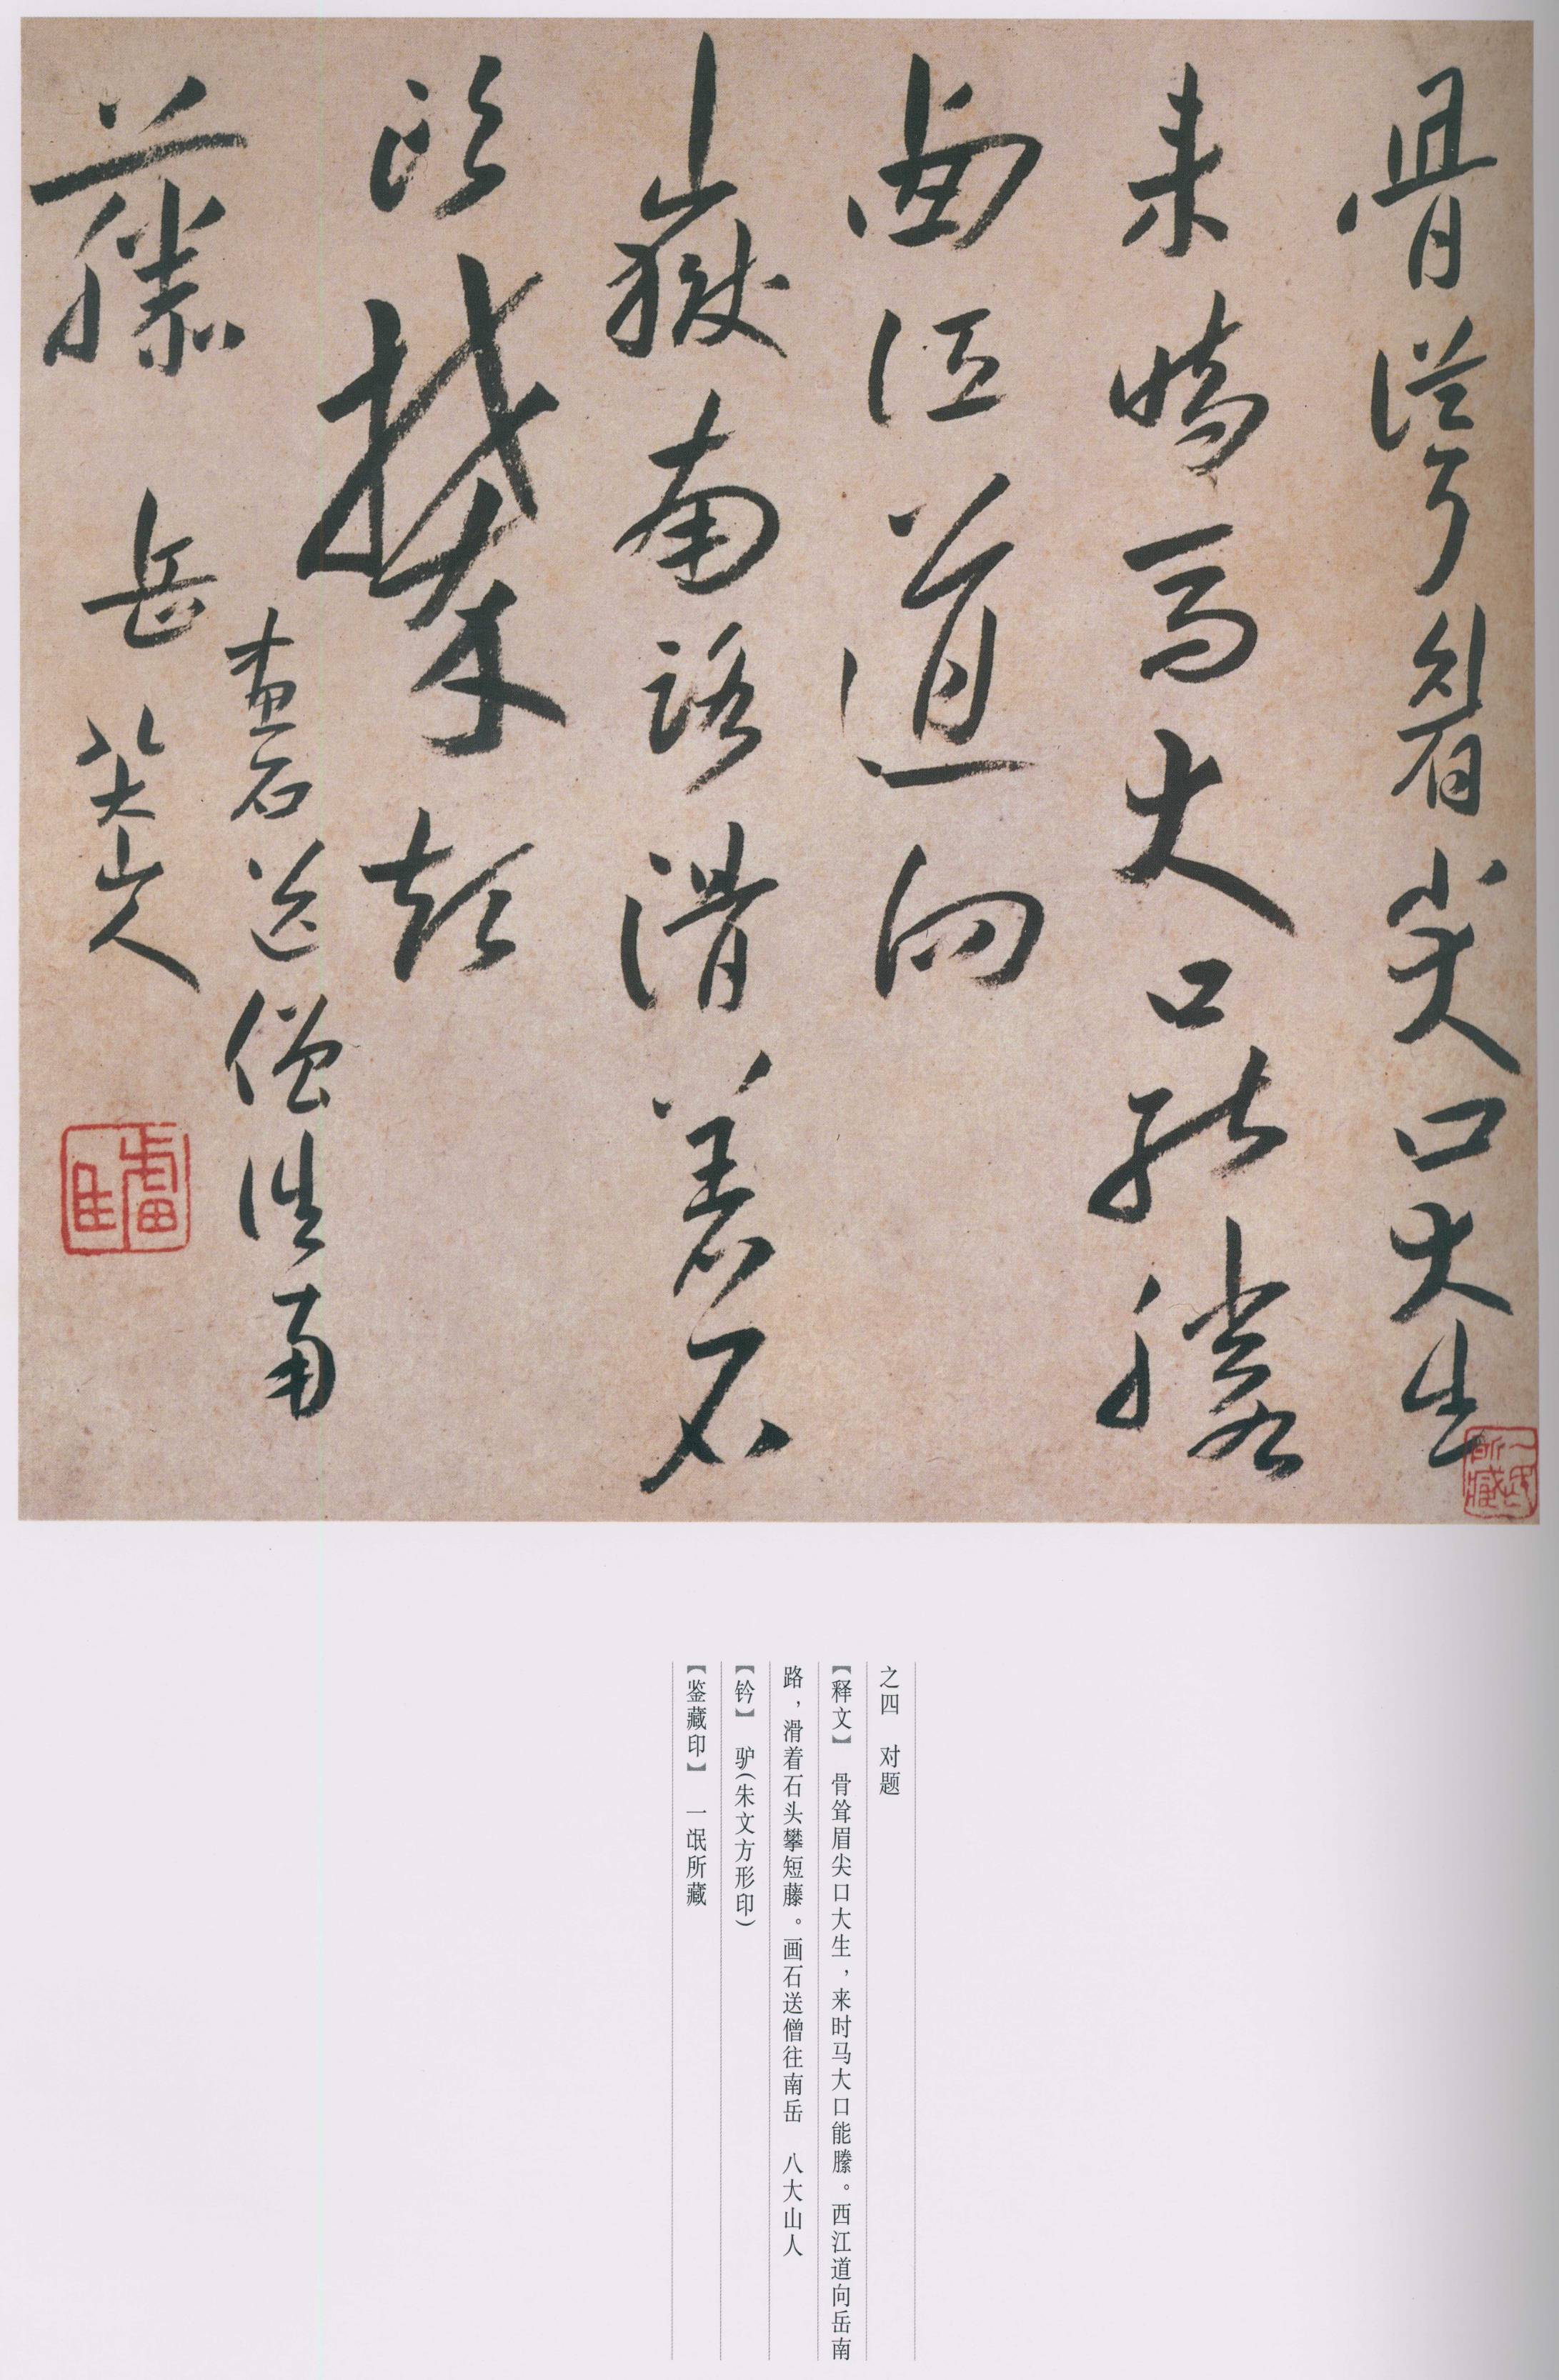 骨聳眉尖口大生
来时馬大口能滕
西江道向
嶽南路滑着石
頭攀短
藤
画石送僧往南
岳 八大山人
驴
一氓所藏
之四 对题
【释文】 骨耸眉尖口大生，来时马大口能滕。西江道向岳南
路，滑着石头攀短藤。画石送僧往南岳 八大山人
【钤】 驴(朱文方形印)
【鉴藏印】 一氓所藏